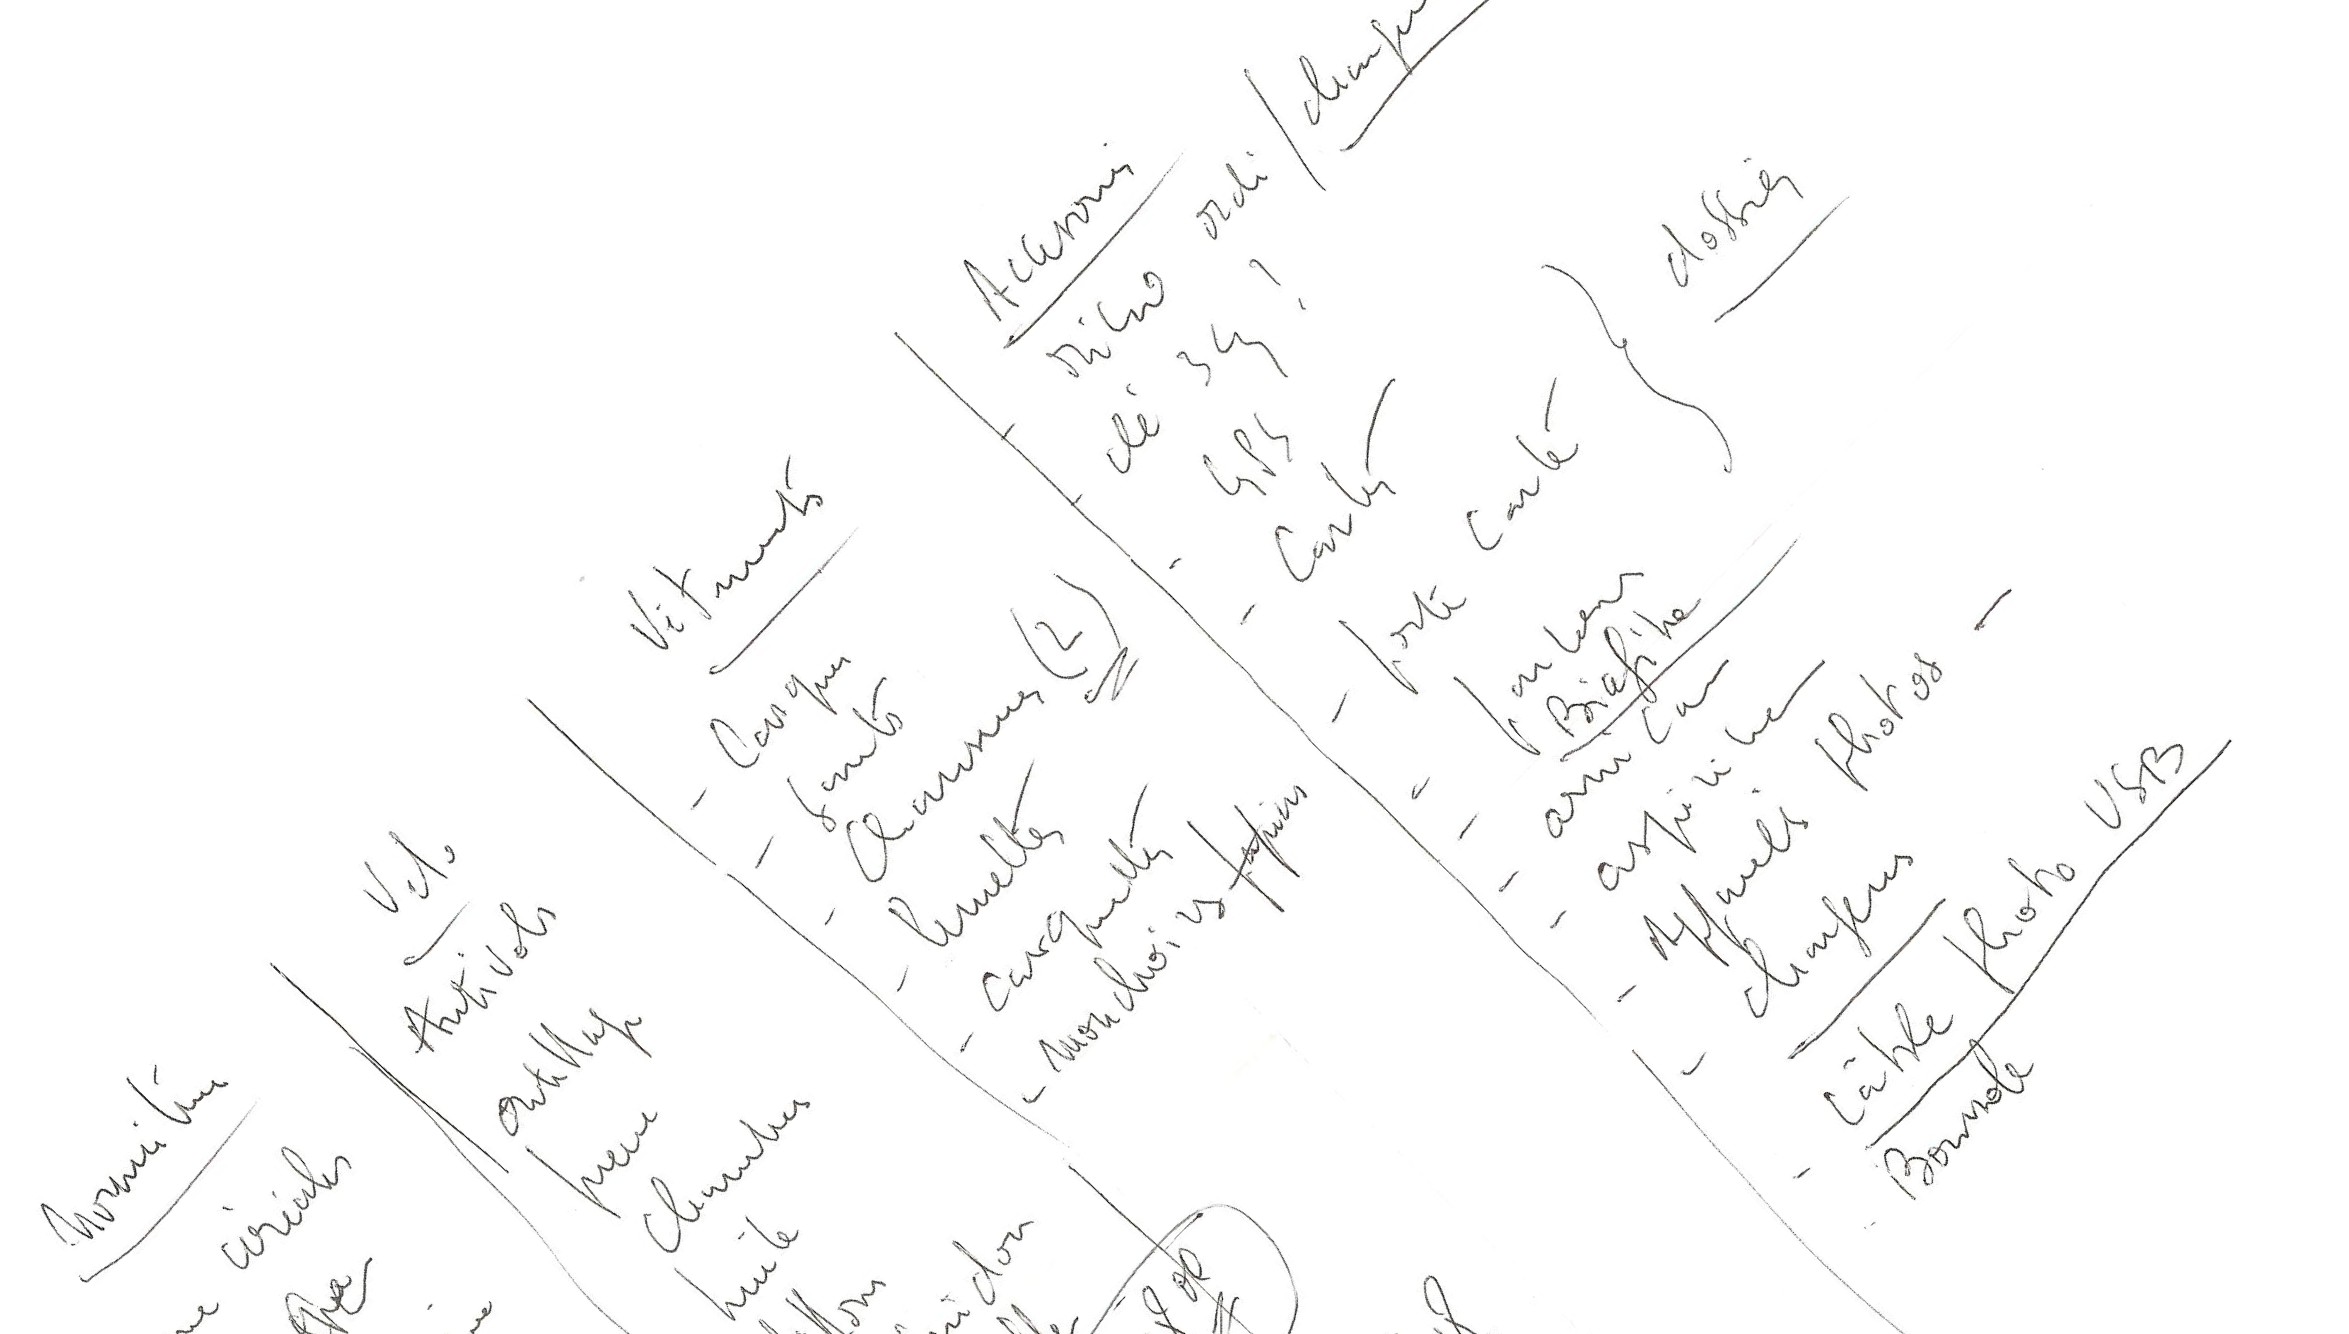 Nourriture
céréales
Vélo
Antivols
outillage
pneu
chambres
huile
Vêtements
- Casque
- gants
- Chaussures (2)
- lunettes
- casquettes
- mouchoirs papier
TOP
Accessoires
- micro ordi / chargeur
- clé 3G ?
- GPS
- Cartes
- porte carte
dossier
- Biafine
- arnica
- aspirine
- Appareils photos -
- chargeurs
- câble photo USB
- Boussole